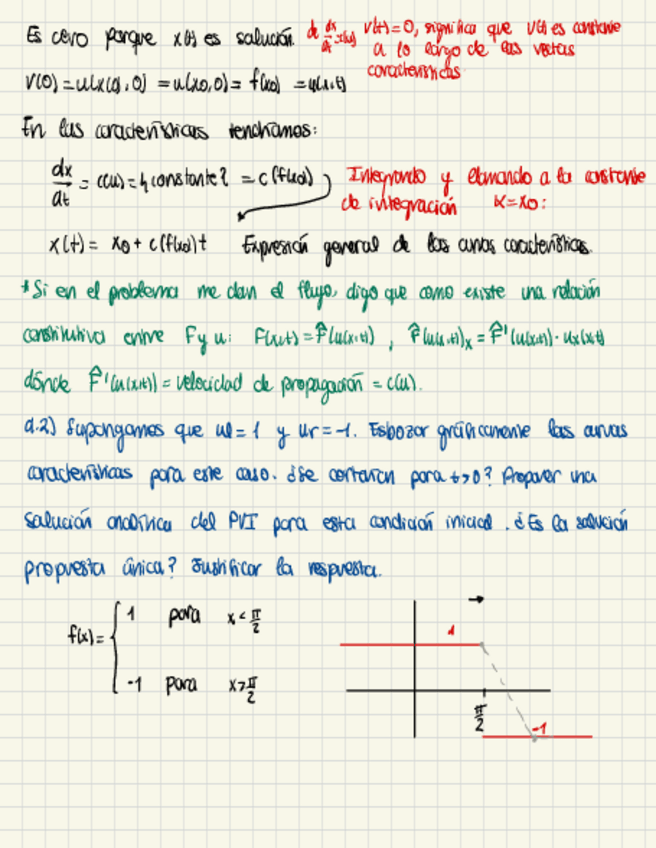 Es cero porque x(t) es solución de dx/dt = c(u) v'(t)=0, significa que v(t) es constante
a lo largo de las rectas
características.
v(0) = u(x(0),0) = u(x0,0) = f(x0) = u(x,t)
En las características tendríamos:
dx/dt = c(u) = ¿constante? = c(f(x0)) Integrando y llamando a la constante
de integración k=x0:
x(t) = x0 + c(f(x0))t Expresión general de las curvas características.
*Si en el problema me dan el flujo, digo que como existe una relación
constitutiva entre F y u: F(x,t) = F̂(u(x,t)), F̂(u(x,t))x = F̂'(u(x,t))·ux(x,t)
dónde F̂'(u(x,t)) = velocidad de propagación = c(u).
d.2) Supongamos que ul=1 y ur=-1. Esbozar gráficamente las curvas
características para este caso. ¿Se cortarían para t>0? Proponer una
solución analítica del PVI para esta condición inicial. ¿Es la solución
propuesta única? Justificar la respuesta.
f(x)= { 1 para x<π/2
-1 para x>π/2
1
π/2
-1